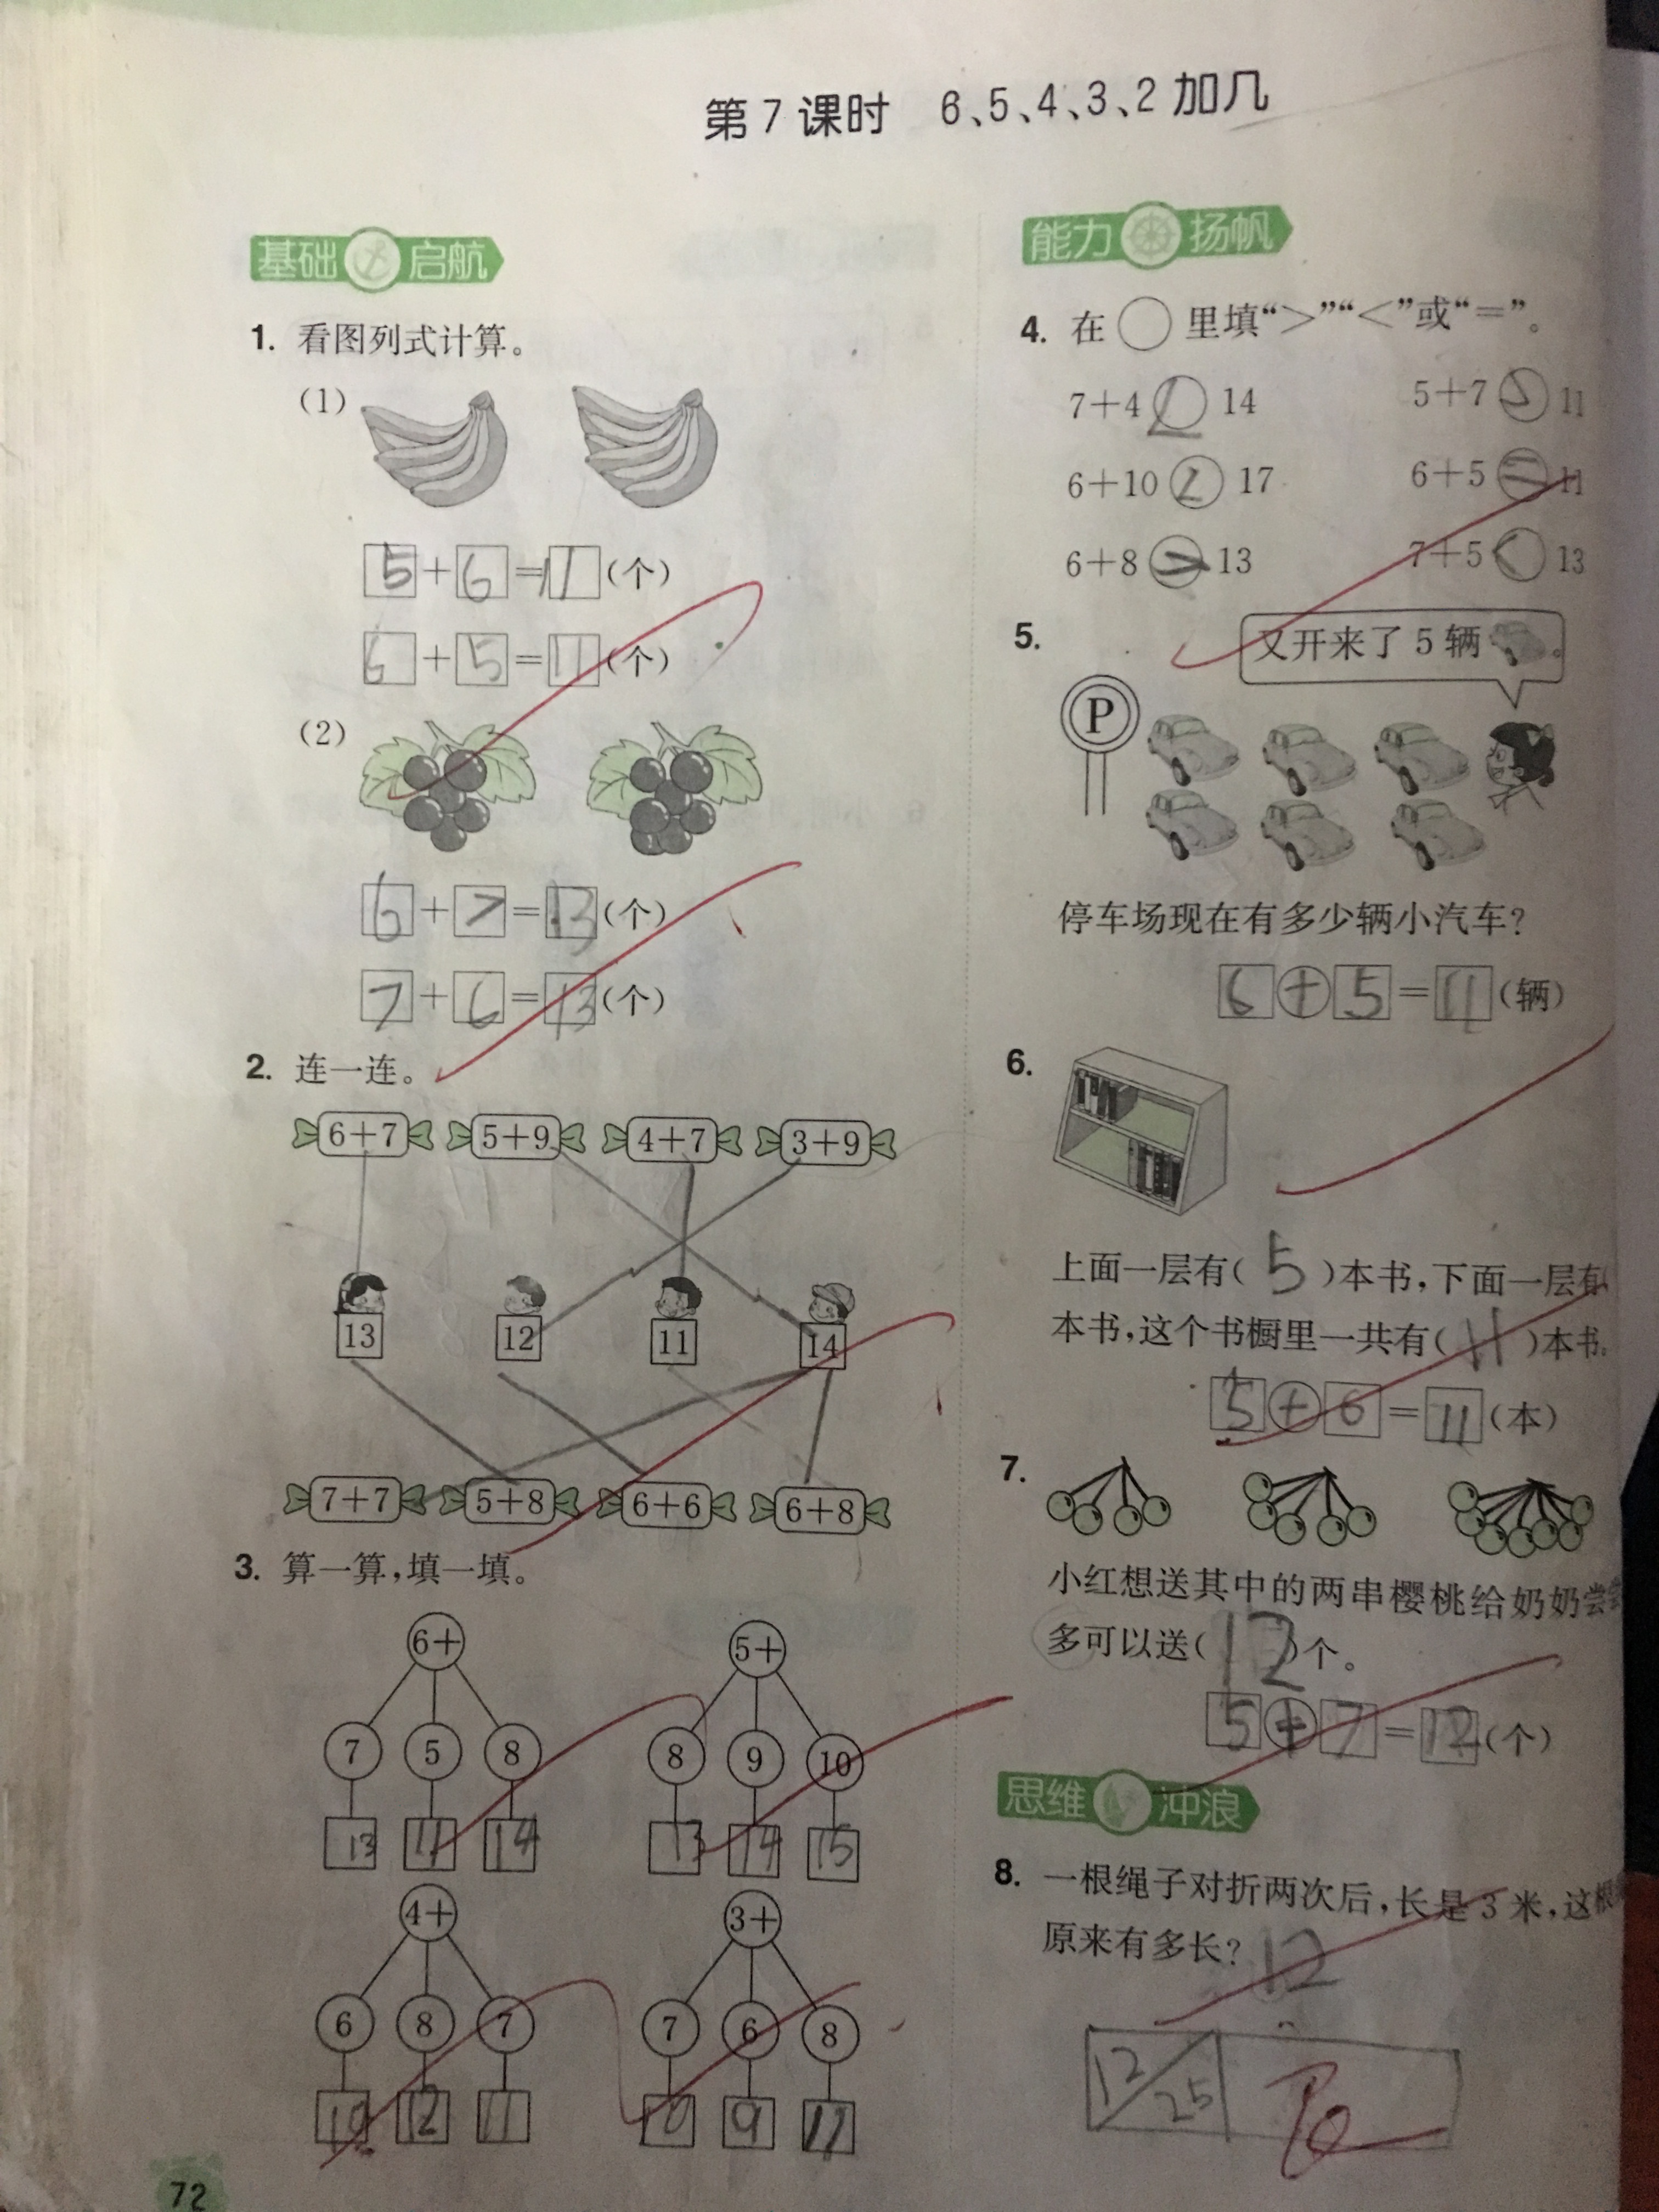 第7课时 6、5、4、3、2加几
基础 启航
1. 看图列式计算。
(1)
5+6=11(个)
6+5=11(个)
(2)
6+7=13(个)
7+6=13(个)
2. 连一连。
6+7 5+9 4+7 3+9
13 12 11 14
7+7 5+8 6+6 6+8
3. 算一算,填一填。
6+ 5+
7 5 8 8 9 10
13 11 14 13 14 15
4+ 3+
6 8 7 7 6 8
10 12 11 10 9 11
72
能力 扬帆
4. 在○里填“>”“<”或“=”。
7+4<14 5+7>11
6+10<17 6+5=11
6+8>13 7+5<13
5.
又开来了5辆。
P
停车场现在有多少辆小汽车?
6+5=11(辆)
6.
上面一层有(5)本书,下面一层有
本书,这个书橱里一共有(11)本书.
5+6=11(本)
7.
小红想送其中的两串樱桃给奶奶尝
多可以送(12)个。
5+7=12(个)
思维 冲浪
8. 一根绳子对折两次后,长是3米,这根
原来有多长? 12
12/25